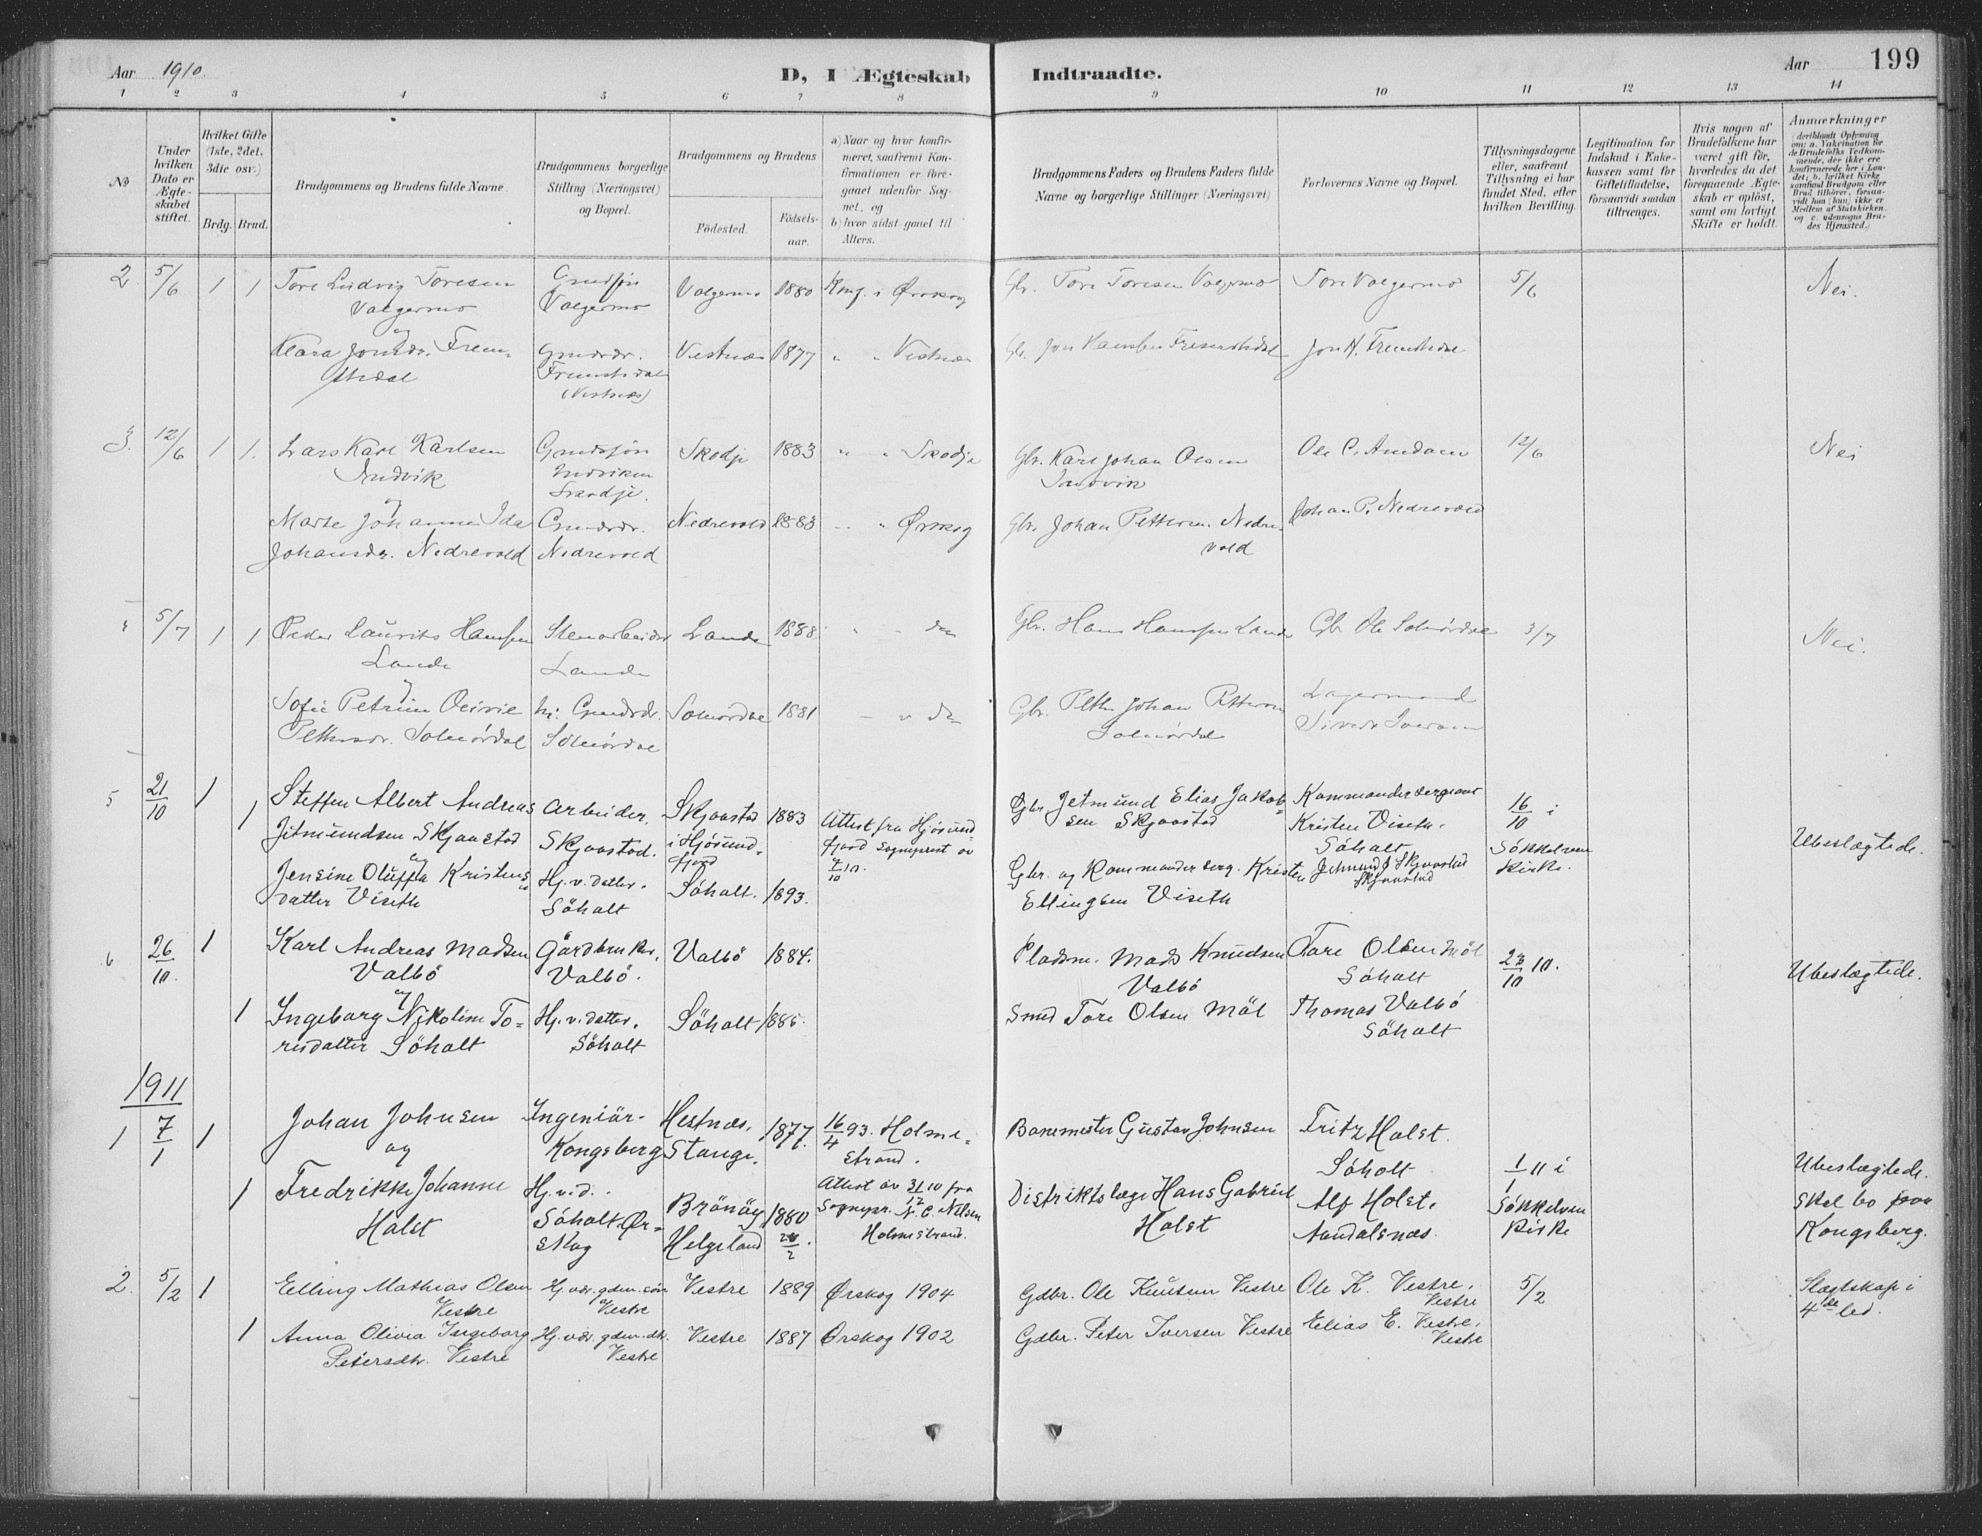 Aar 1910.
D, I Ægteskab Indtraadte.
Aar 199
1 2 3 4 5 6 7 8 9 10 11 12 13 14
No
Under hvilken Dato er Ægteskabet stiftet.
Hvilket Gifte (1ste, 2det, 3die osv.)
Brdg. Brud.
Brudgommens og Brudens fulde Navne.
Brudgommens borgerlige Stilling (Næringsvei) og Bopæl.
Brudgommens og Brudens
Fødested. Fødsels-aar.
a) Naar og hvor konfirmeret, saafremt Konfirmationen er foregaaet udenfor Sognet, og
b) hvor sidst gaaet til Alters.
Brudgommens Faders og Brudens Faders fulde Navne og borgerlige Stillinger (Næringsvei)
Forlovernes Navne og Bopæl.
Tillysningsdagene eller, saafremt Tillysning ei har fundet Sted, efter hvilken Bevilling.
Legitimation for Indskud i Enkekassen samt for Giftetilladelse, forsaavidt saadan tiltrænges.
Hvis nogen af Brudefolkene har været gift før, hvorledes da det foregaaende Ægteskab er opløst, samt om lovligt Skifte er holdt.
Anmærkninger
2 5/6 1 1 Tore Ludvig Toresen Valgermo Valgermo Valgermo 1880 Konf. i Ørskog Gbr. Tore Toresen Valgermo Tore Valgermo 5/6 Nei.
og
Klara Jonsdr. Fremstedal Gmdsdr. Fremstedal (Vestnes) Vestnæs 1877 " " Vestnæs Gbr. Jon Hansen Fremstedal Jon H. Fremstedal
3. 12/6 1 1. Lars Karl Karlsen Indvik Gmdssøn Indviken Skodje. Skodje 1883 " " Skodje Gbr. Karl Johan Olsen Indvik Ole C. Amdam 12/6 Nei
og
Marte Johanne Ida Johansdr. Nedrevold Gmdsdr. Nedrevold Nedrevold 1883 " " Ørskog Gbr. Johan Petteren Nedrevold Johan P. Nedrevold
5/7 1 1 Peder Laurits Hansen Lande Stenarbeider Lande Lande 1888 Gbr. Hans Hansen Lande Gbr. Ole Solnørdal 3/7 Nei.
og
Sofie Petrine Pettersdr. Solnørdal Gmdsdr. Solnørdal Solnørdal 1881 Gbr. Petter Johan Petteren Solnørdal Lagermand
5 21/10 1 1 Steffen Albert Andreas Jetmundsen Skjaastad Arbeider, Skjaastad. Skjaastad i Hjørundfjord 1883 Attest fra Hjørundfjord Sogneprest av 7/10 10. Gbr. Jetmund Elias Jakobsen Skjaastad Kommandersergeant Kristen Viseth. Søholt 16/10 i Søkkelven Kirke. Ubeslægtede.
og
Jensine Oluffa Kristensdatter Viseth Hj. v. datter. Søholt Søholt. 1893. Gbr. og Kommanderserg. Kristen Ellingsen Viseth Jetmund J. Skjaastad Skjaastad
6 26/10. 1 Karl Andreas Madsen Valbø Gårdbruker, Valbø. Valbø 1884. Pladsm. Mads Knudsen Valbø Tore Olsen Møl Søholt 23/10 10. Ubeslægtede.
og
1 Ingeborg Nikoline Toresdatter Søholt Hj. v. datter. Søholt Søholt 1885. Smed Tore Olsen Møl Thomas Valbø Søholt
1911
1 7/1 1 Johan Johnsen Ingeniør- Kongsberg Hestnæs, Stange. 1877. 16/4 93. Holmestrand. Banemester Gustav Johnsen Fritz Holst. Søholt 1/1 11 i Søkkelven Kirke Ubeslægtede. Skal bo paa Kongsberg.
og
1 Fredrikke Johanne Holst Hj. v. d. Søholt. Ørskog Brönöy Helgeland 1880 Attest av 31/12 10 fra Sognepr. N. C. Nilsen Holmestrand. Distriktslæge Hans Gabriel Holst Alf Holst, Aandalsnæs.
2. 5/2 1 Elling Mathias Olsen Vestre Hj. vær. gdm. søn Vestre Vestre 1889 Ørskog 1904 Gdbr. Ole Knutsen Vestre Ole K. Vestre, Vestre 5/2 Slægtskap i 4de led.
1 Anna Olivia Ingeborg Petersdtr. Vestre Hj. vær. gdm. dtr. Vestre Vestre 1887 Ørskog 1902 Gdbr. Peter Iversen Vestre Elias E. Vestre, Vestre